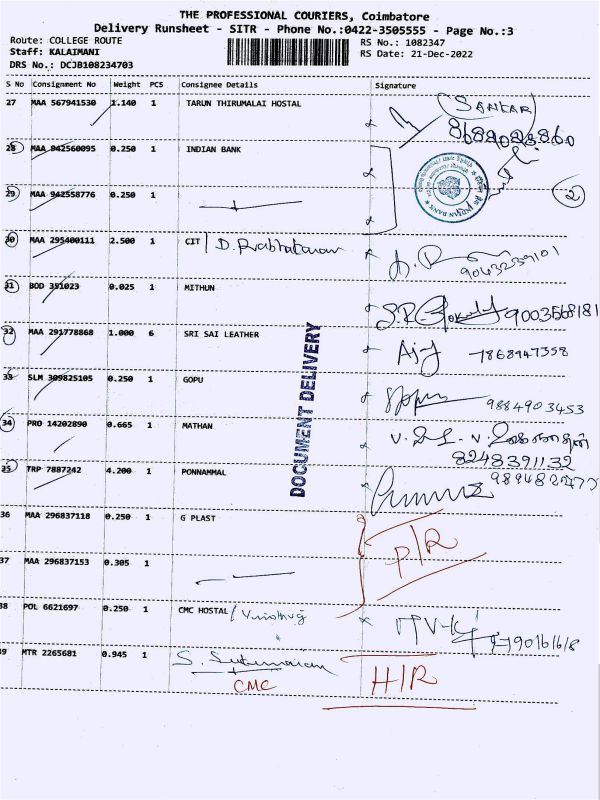 THE PROFESSIONAL COURIERS, Coimbatore
Delivery Runsheet - SITR - Phone No.:0422-3505555 - Page No.:3
Route: COLLEGE ROUTE RS No.: 1082347
Staff: KALAIMANI RS Date: 21-Dec-2022
DRS No.: DCJB108234703
S No Consignment No Weight PCS Consignee Details Signature
27 MAA 567941530 1.140 1 TARUN THIRUMALAI HOSTAL (SANKAR)
28 MAA 942560095 0.250 1 INDIAN BANK
29 MAA 942558776 0.250 1 2
30 MAA 295400111 2.500 1 CIT / D. Prabhakaran
9043239101
31 BOD 351023 0.025 1 MITHUN
9003568181
32 MAA 291778868 1.000 6 SRI SAI LEATHER
7868947358
DOCUMENT DELIVERY
33 SLM 309825105 0.250 1 GOPU
9884903453
34 PRO 14202890 0.665 1 MATHAN
8248391132
35 TRP 7887242 4.200 1 PONNAMMAL
36 MAA 296837118 0.250 1 G PLAST
P/R
37 MAA 296837153 0.305 1
38 POL 6621697 0.250 1 CMC HOSTAL
39 MTR 2265681 0.945 1
CMC H/R